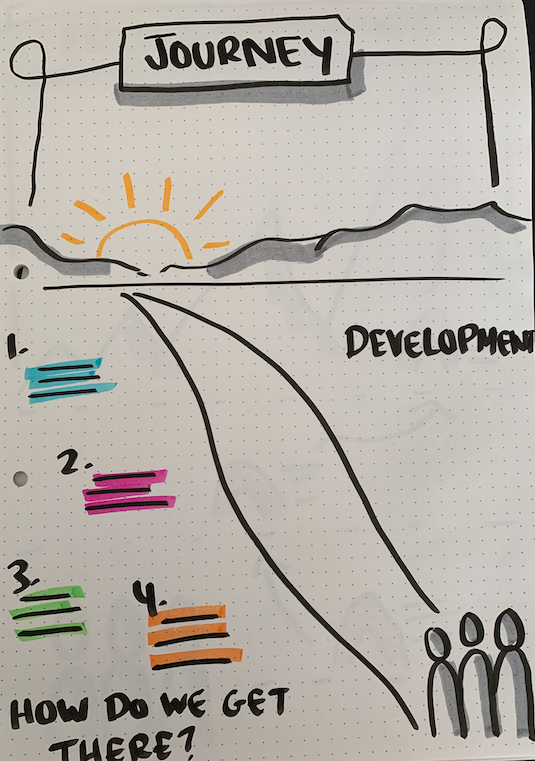 JOURNEY
1.
DEVELOPMENT
2.
3.
4.
HOW DO WE GET
THERE?